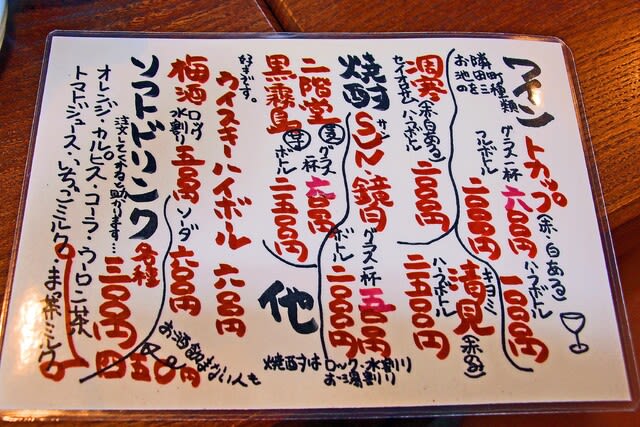 ワイン
隣町
池田の
お三種類を
トカップ(赤・白ある)
グラス一杯 六百円 ハーフボトル 一000円
フルボトル 二000円
清見(赤のみ)
キヨミ
ハーフボトル 二五00円
凋寒(赤・白ある)
セイオロサム
ハーフボトル 二000円
焼酎
SUN・鏡月
サン
グラス一杯 五百円
ボトル 二000円
二階堂(麦)
黒霧島(芋)
グラス一杯 六百円
ボトル 二五00円
他
焼酎はロック・水割り
お湯割り
好きです。
ウイスキーハイボール 六00円
梅酒 ロック 水割り 五百円 ソーダ 六00円
お酒飲まない人も
ソフトドリンク 各種 三00円
注文してくれると助かります…
オレンジ・カルピス・コーラ・ウーロン茶
トマトジュース・いちごミルク・まっ茶ミルク
四五0円